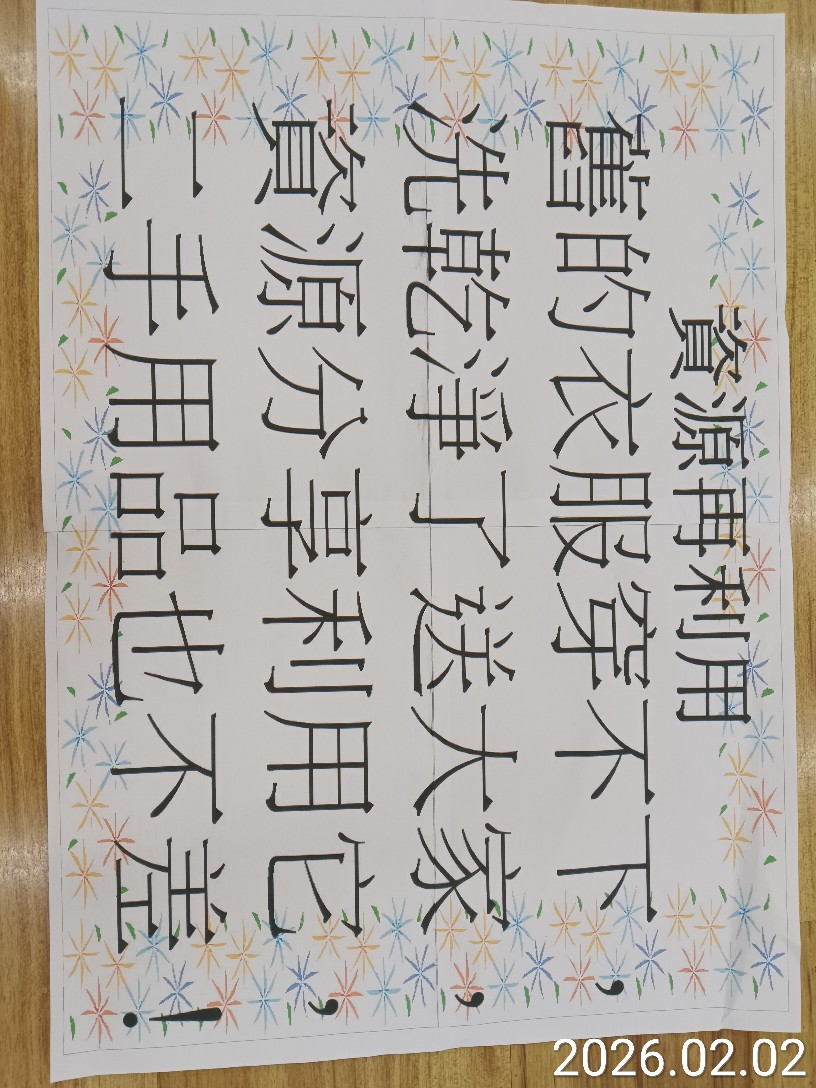 資源再利用
舊的衣服穿不下，
洗乾淨了送大家，
資源分享利用它，
二手用品也不差！
2026.02.02